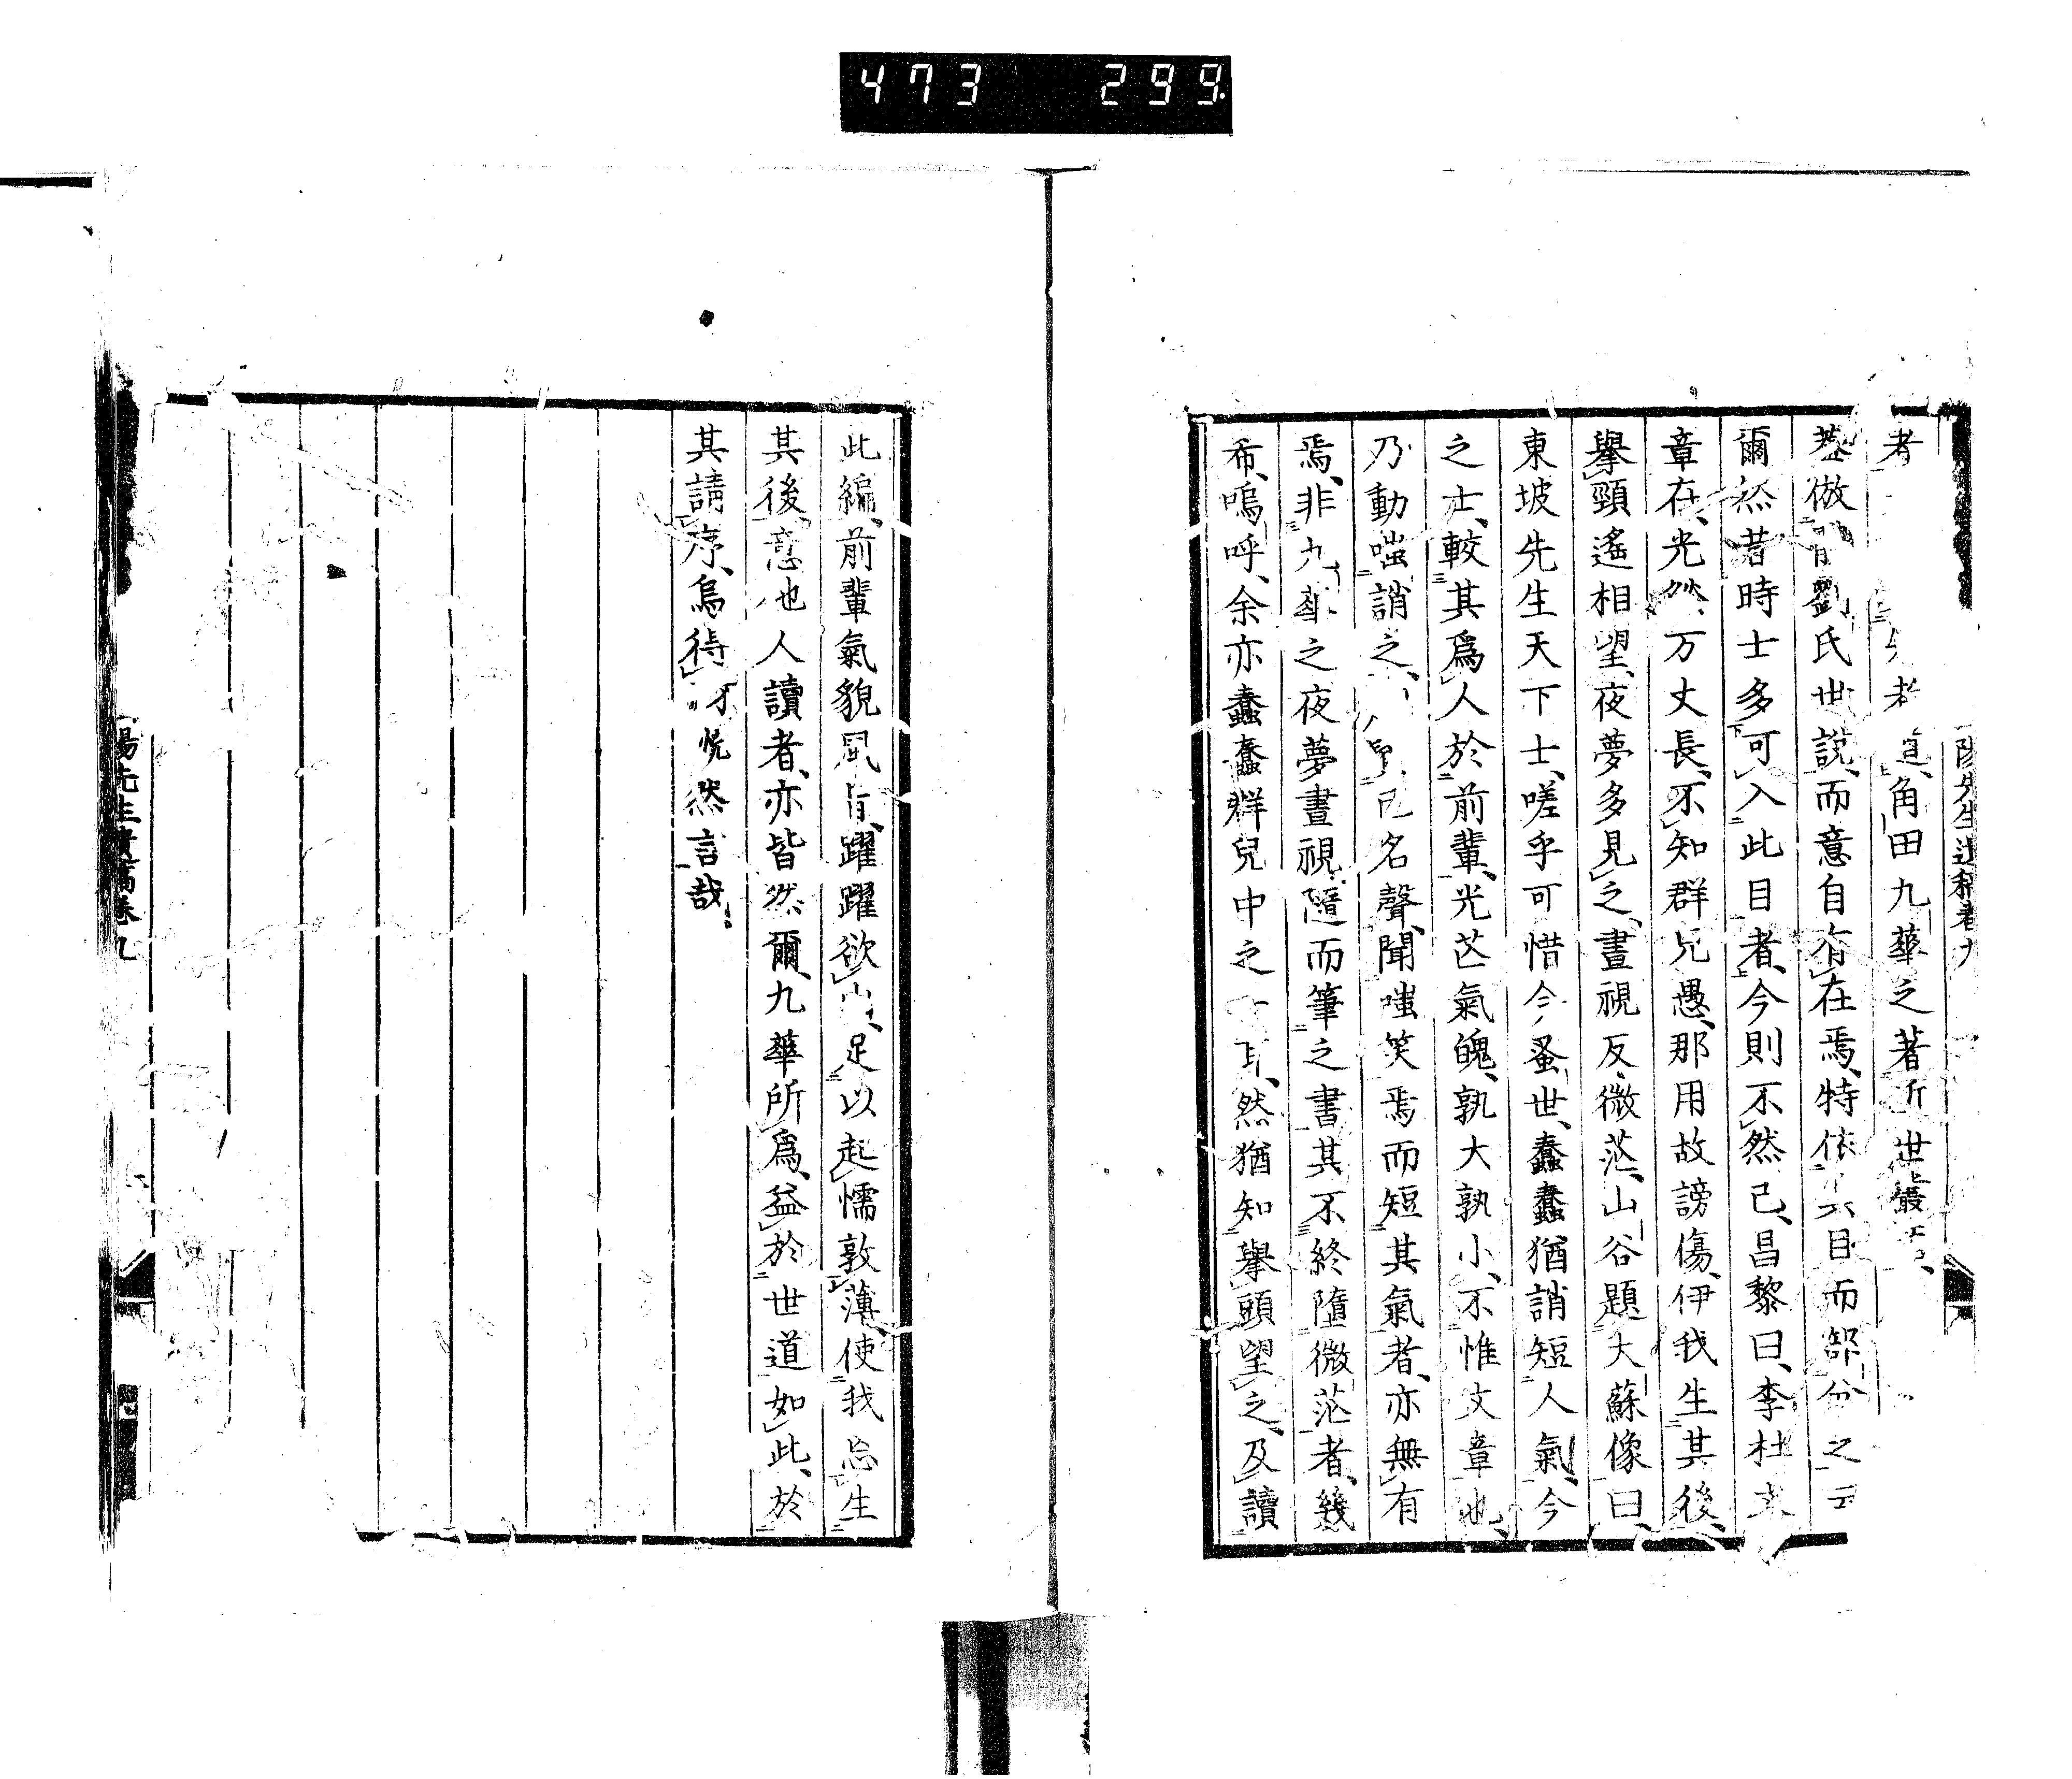 473 299.
考 者 角田九華之著近世叢
倣 劉氏世說、而意自有在焉、特依 目而部分之云
爾然昔時士多可入此目者、今則不然已、昌黎曰、李杜文
章在、光焰万丈長、不知群兒愚、那用故謗傷、伊我生其後、
擧頸遙相望、夜夢多見之、晝視反微茫、山谷題大蘇像曰、
東坡先生天下士、嗟乎可惜今蚤世、蠢蠢猶誚短人氣、今
之士、較其爲人於前輩、光芒氣魄、孰大孰小、不惟文章也、
乃動嗤誚之、 名聲、聞嗤笑焉而短其氣者、亦無有
焉、非九華之夜夢晝視隨而筆之書其不終墮微茫者、幾
希、嗚呼、余亦蠢蠢群兒中之 耳、然猶知擧頭望之、及讀
此編、前輩氣貌風旨、躍躍欲 、足以起懦敦薄、使我忘生
其後、意也人讀者、亦皆然爾、九華所爲、益於世道如此、於
其請序、烏得 恱然言哉、
陽先生遺稿卷九